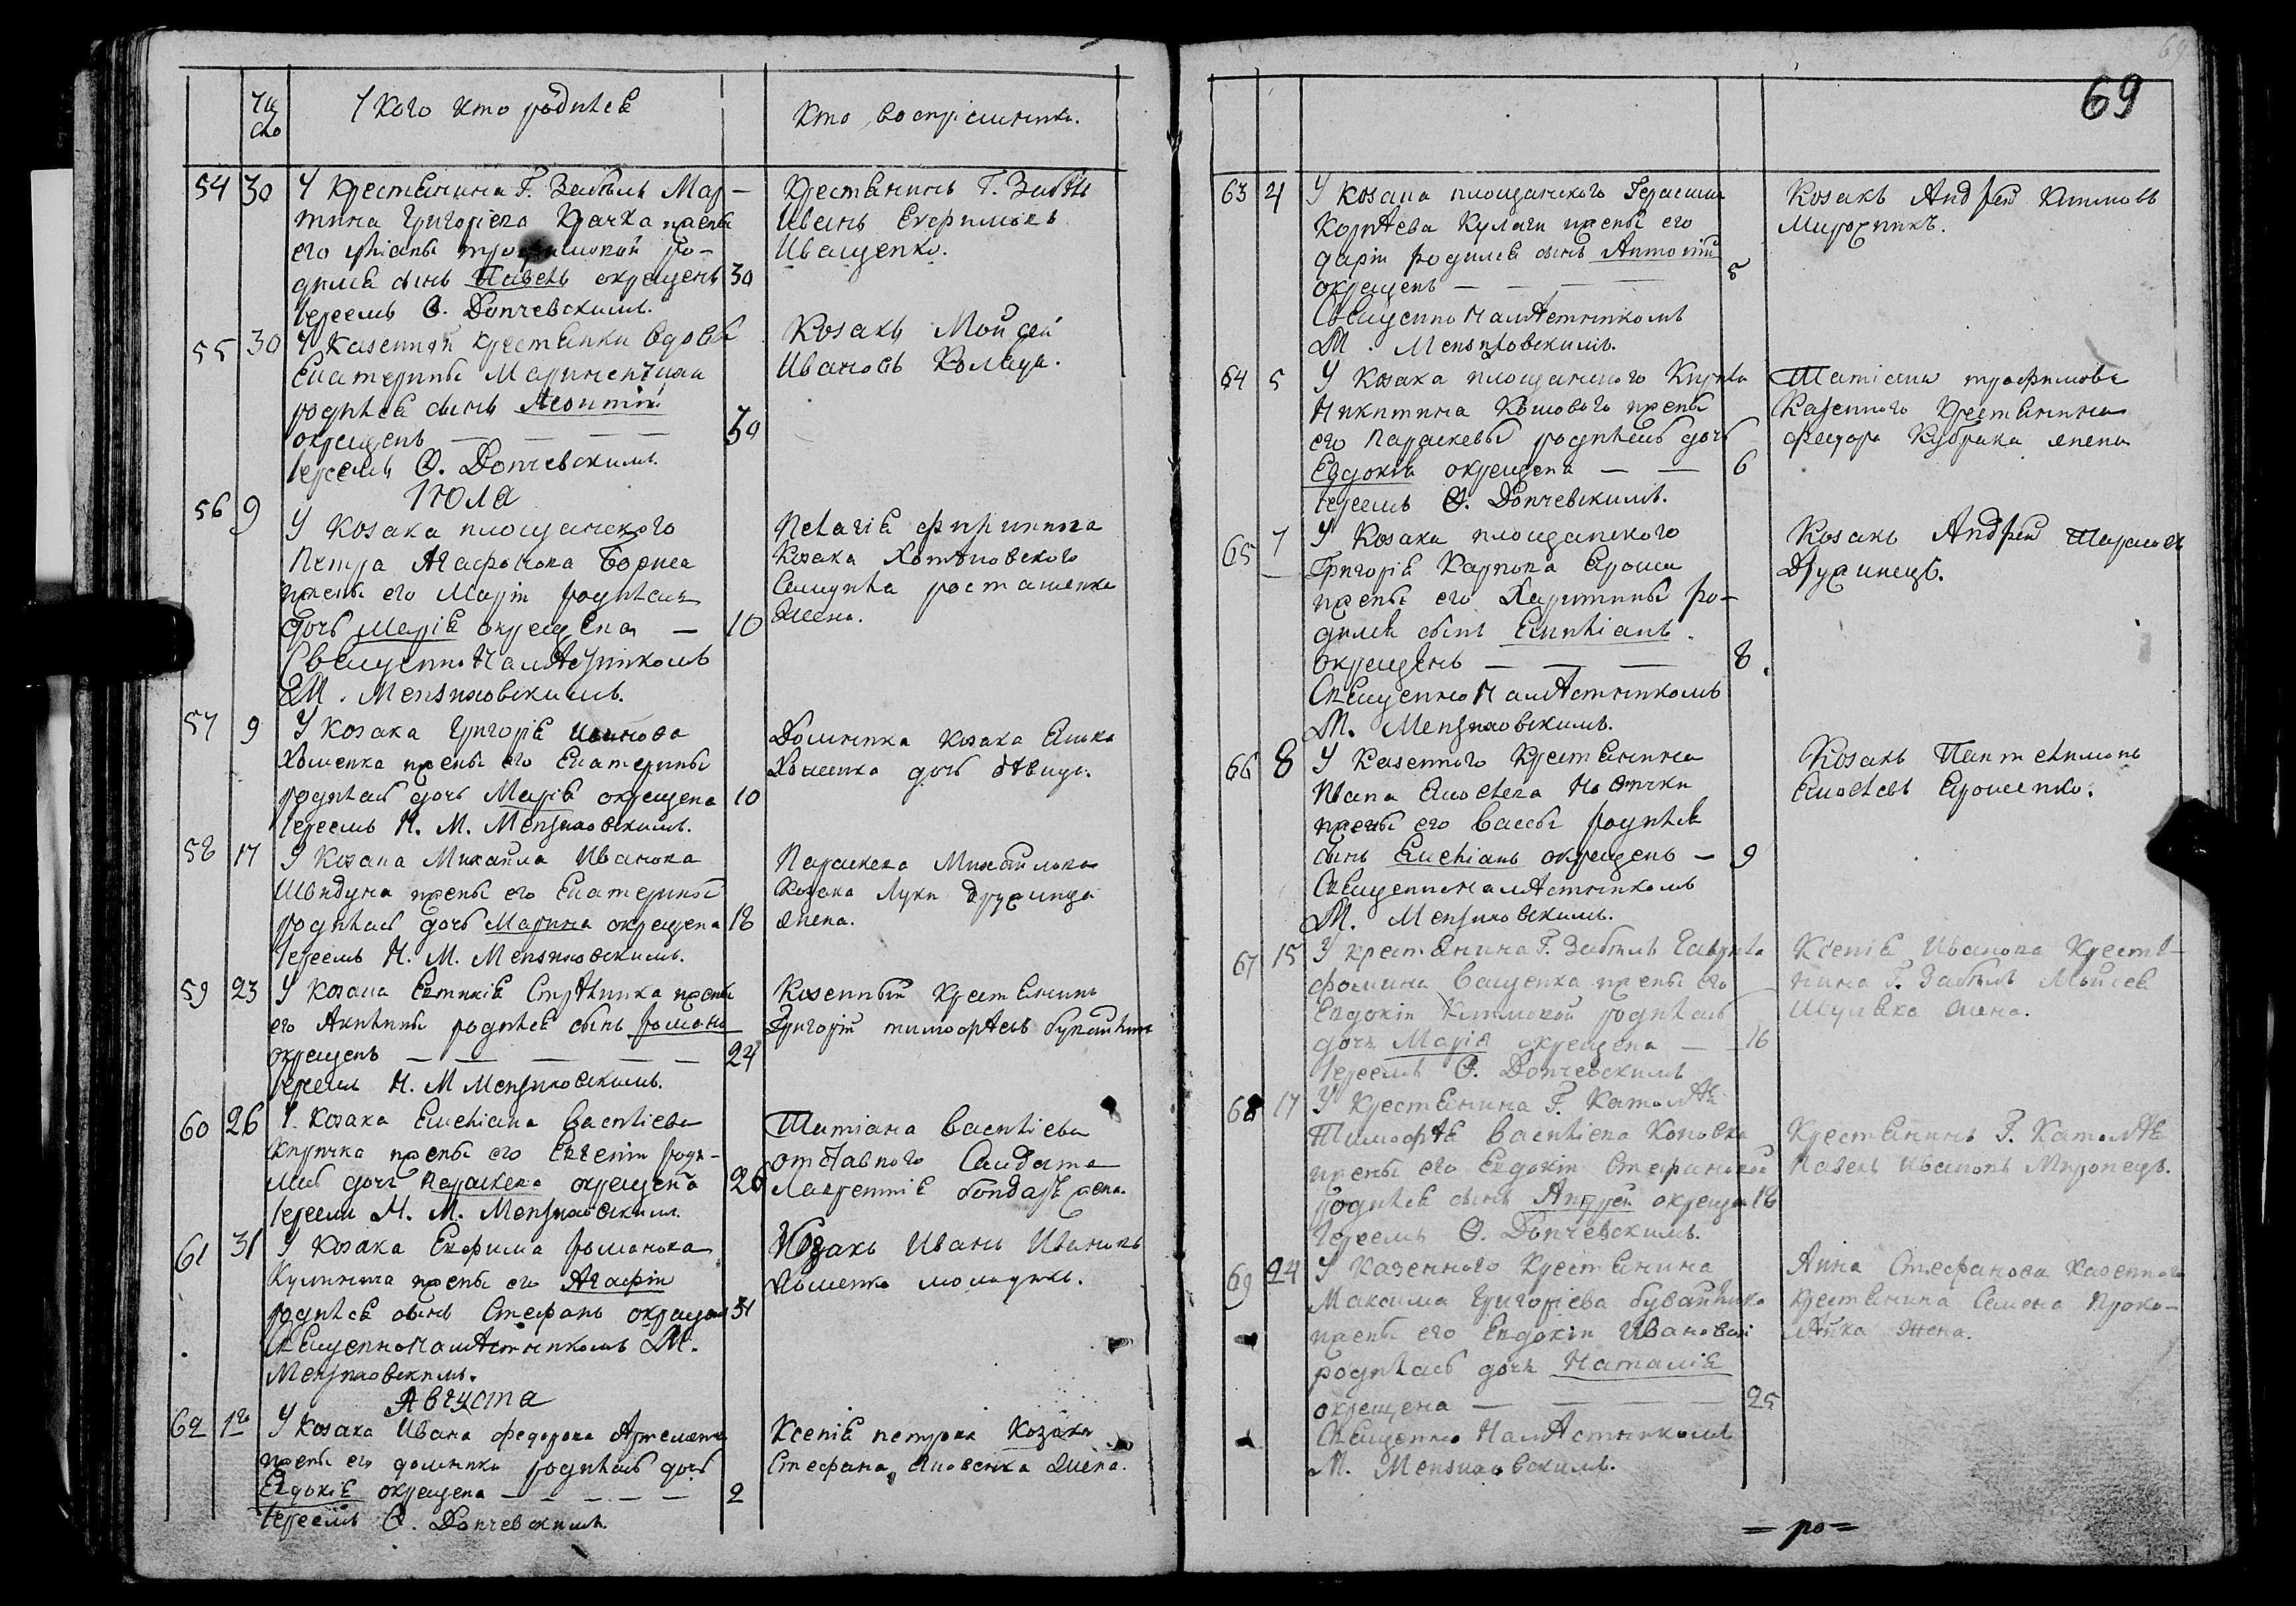 69
Чи
сло
У кого кто родился
Кто воспріемники.
54 30 У крестянина Г. Забѣлы Мар-
тина Григоріева Крачка жены
его Уліаны Трофимовой ро-
дился сынъ Павелъ окрещенъ 30
Іереемъ Ѳ. Допчевскимъ.
Крестянинъ Г. Забѣлы
Иванъ Евфимовъ
Иващенко.
55 30 У казенной крестянки вдовы
Екатерины
родился сынъ Леонтій
окрещенъ — — — — 30
Іереемъ Ѳ. Допчевскимъ.
Козакъ Мойсей
Ивановъ Коляда.
Іюля
56 9 У козака площанского
Петра Агафонова Бориса
жены его Маріи родилась
дочь Марія окрещена — 10
Священнонамѣстникомъ
М. Мензиховскимъ.
Пелагія Филиппова
козака
жена.
57 9 У козака Григорія Иванова
Хоменка жены его Екатерины
родилась дочь Марія окрещена 10
Іереемъ Н. М. Мензиховскимъ.
Домникія козака
Хоменка дочь дѣвица.
58 17 У козака Михаила Иванова
Шендуна жены его Екатерины
родилась дочь Марина окрещена 18
Іереемъ Н. М. Мензиховскимъ.
Параскева Михайлова
козака Луки Дружинца
жена.
59 23 У козака Евтихія жены
его Акилины родился сынъ Романъ
окрещенъ — — — — — 24
Іереемъ Н. М Мензиховскимъ.
Казенный крестянинъ
Григорій Тимофѣевъ
60 26 У козака Емеліана Василіева
Киричка жены его Евгеніи роди-
лась дочь Параскева окрещена 26
Іереемъ Н. М. Мензиховскимъ.
Татіана Василіева
отставного Салдата
Лаврентія Бондаря жена.
61 31 У козака Евфима Романова
жены его Агафіи
родился сынъ Стефанъ окрещенъ 31
Священнонамѣстникомъ М.
Мензиховскимъ.
Козакъ Иванъ Ивановъ
Хоменко молодикъ.
Августа
62 1го У козака Ивана Федорова
жены его Домникіи родилась дочь
Евдокія окрещена — — — — — 2
Іереемъ Ѳ. Допчевскимъ.
Ксенія Петрова козака
Стефана Яковенка жена.
63 4 У козака площанского Герасима
Корнѣева Кулаги жены его
Даріи родился сынъ Антоній
окрещенъ — — — — 5
Священнонамѣстникомъ
М. Мензиховскимъ.
Козакъ Андрей Климовъ
Мирохникъ.
64 5 У козака площанского Кирила
Никитина Кошового жены
его Параскевы родилась дочь
Евдокія окрещена — — 6
Іереемъ Ѳ. Допчевскимъ.
Татіана Трофимова
казенного крестянина
Федора Кубрака жена
65 7 У козака площанского
Григорія Карпова Ероши
жены его Харитины ро-
дился сынъ Емиліанъ
окрещенъ — — — 8.
Священнонамѣстникомъ
М. Мензиховскимъ.
Козакъ Андрей Тарасовъ
Дружинецъ.
66 8 У казенного крестянина
Ивана
жены его Вассы родился
сынъ Емеліанъ окрещенъ — 9
Священнонамѣстникомъ
М. Мензиховскимъ.
Козакъ Пантелимонъ
Ярошенко.
67 15 У крестянина Г. Забѣлы Гаврила
Фомина Ващенка жены его
Евдокіи Климовой родилась
дочь Марія окрещена — — 16
Іереемъ Ѳ. Допчевскимъ
Ксенія Иванова крестя-
нина Г. Забѣлы Мойсея
жена.
68 17 У крестянина Г.
Тимофѣя Василіева
жены его Евдокіи Стефановой
родился сынъ Андрей окрещен 18
Іереемъ Ѳ. Допчевскимъ.
Крестянинъ Г.
Павелъ Ивановъ Миронецъ.
69 24 У казенного крестянина
Максима Григоріева
жены его Евдокіи Ивановой
родилась дочь Наталія
окрещена — — — — 25
Священнонамѣстникомъ
М. Мензиховскимъ.
Анна Стефанова казенного
крестянина Семена
жена.
= ро =